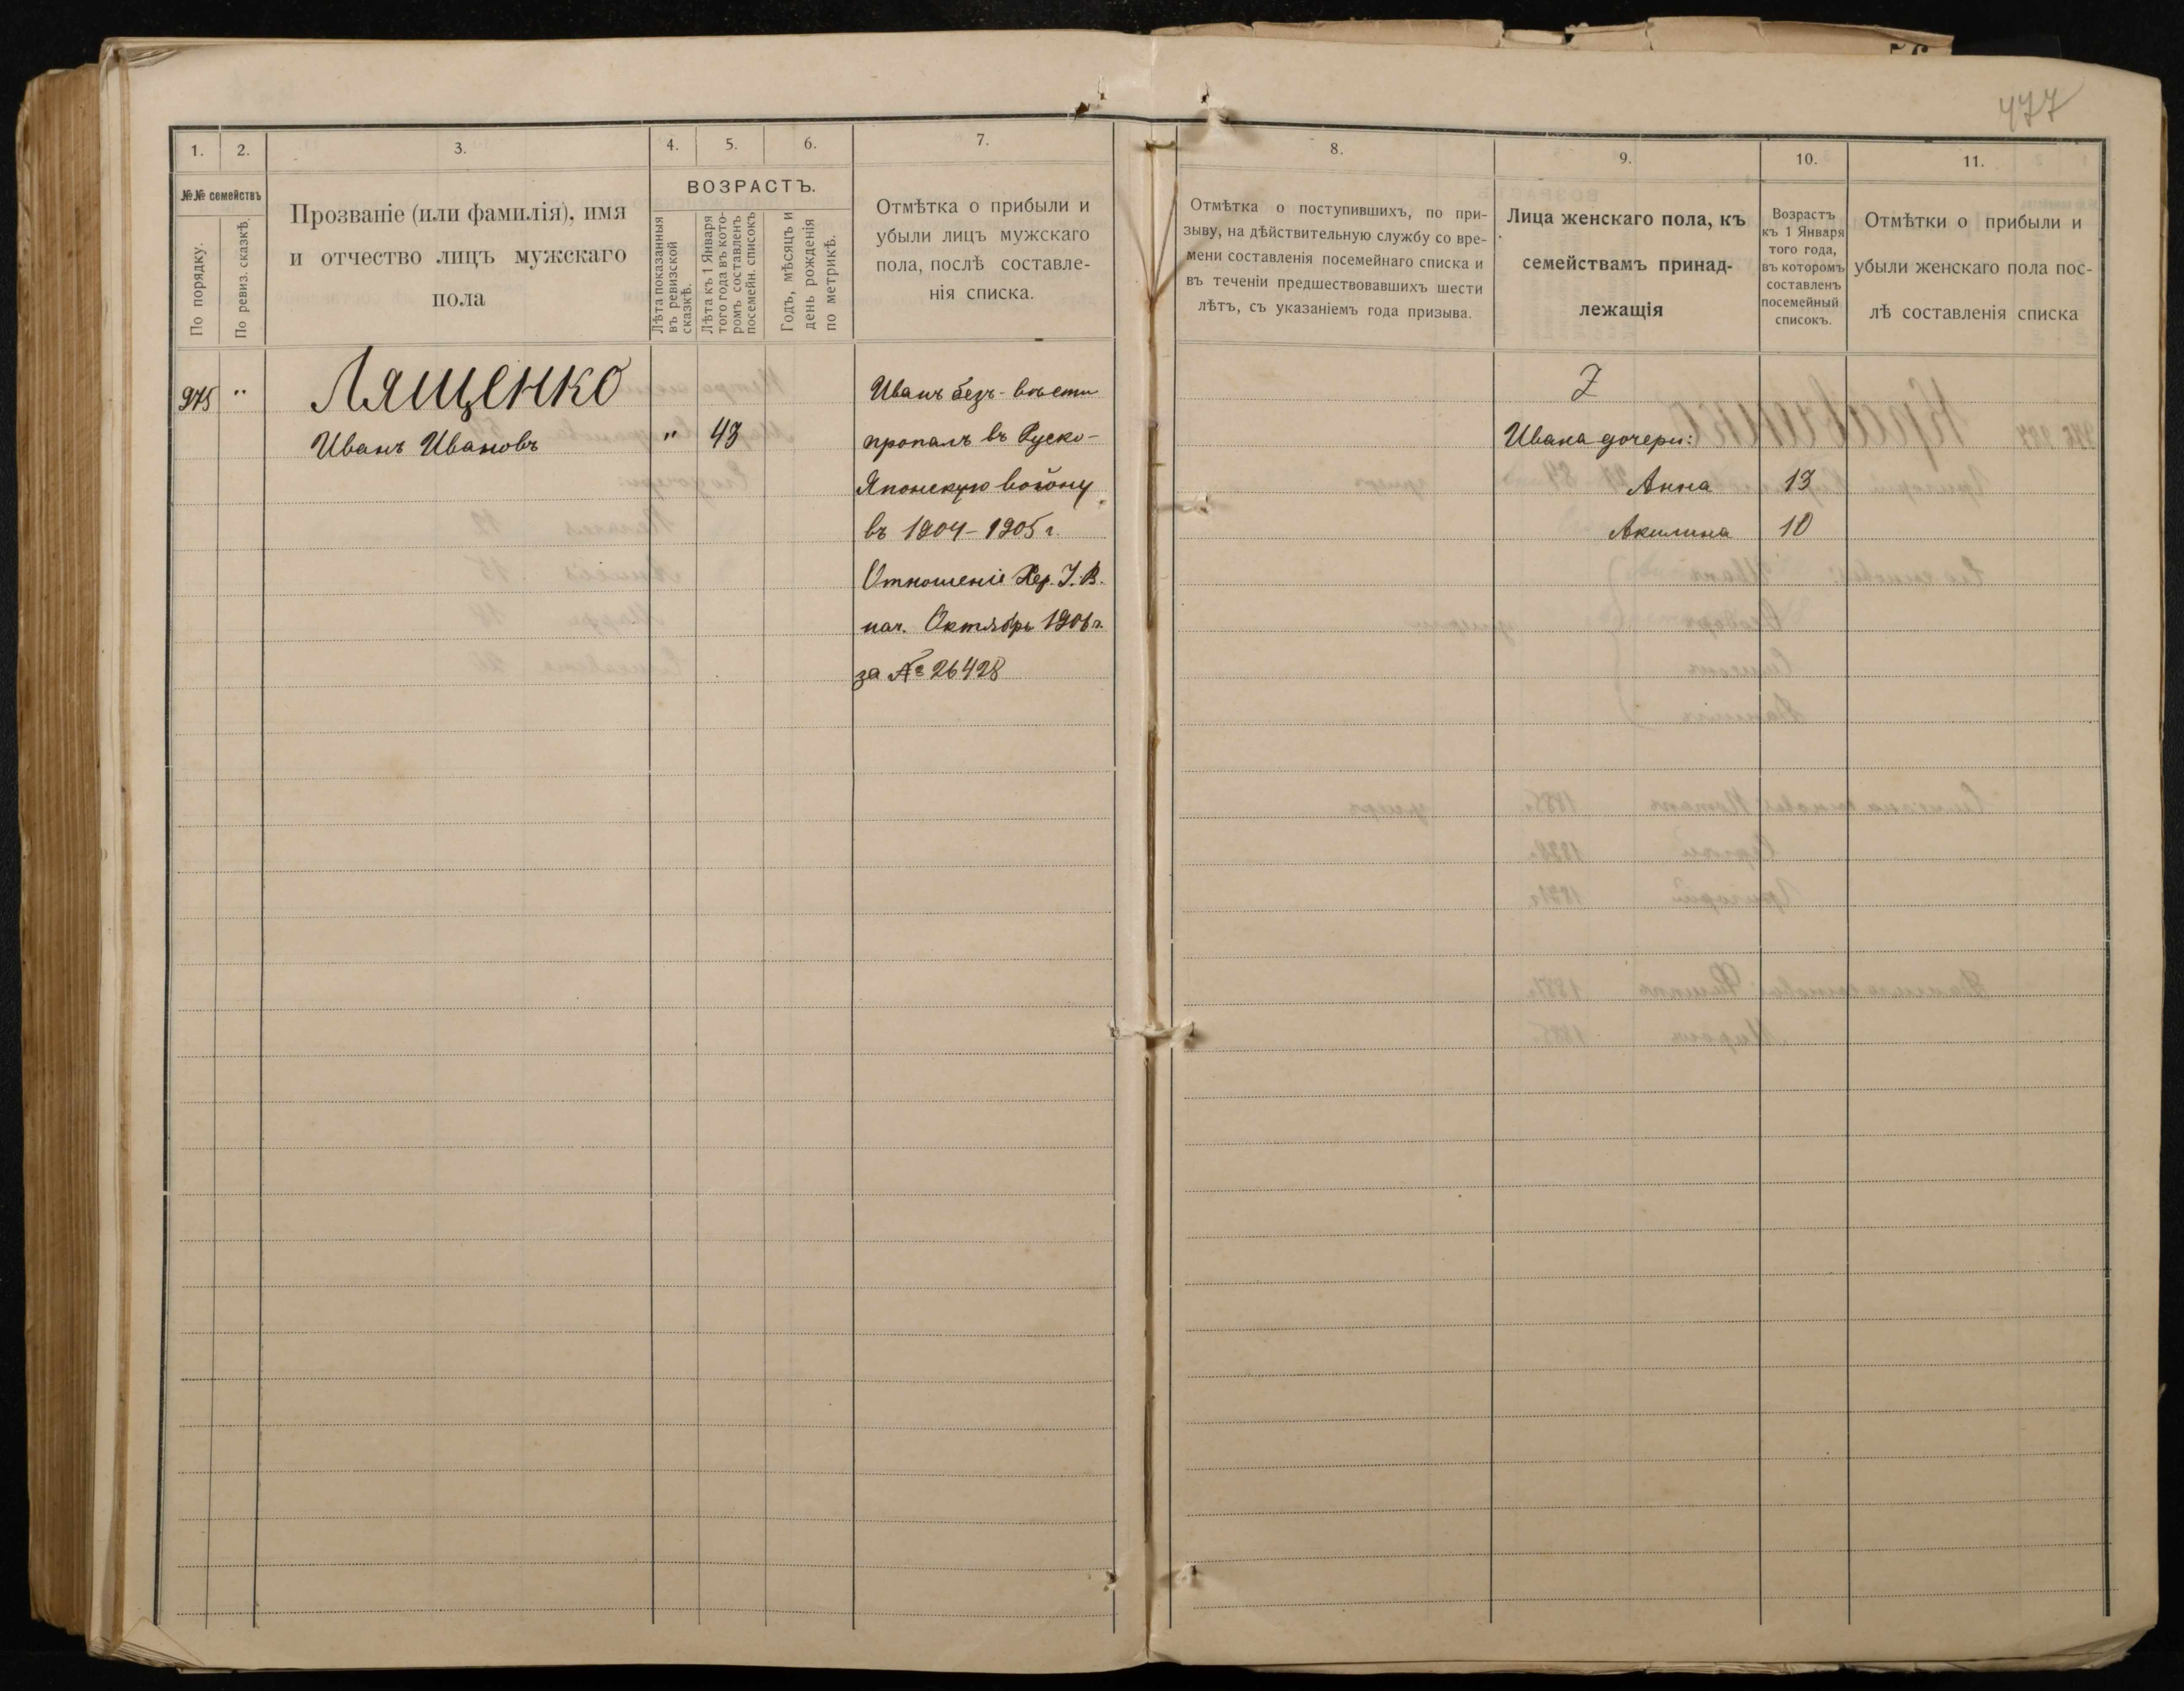 477
1.
2.
3.
4.
5.
6.
7.
№№ семействъ
По порядку.
По ревиз. сказкѣ.
Прозваніе (или фамилія), имя
и отчество лицъ мужскаго
пола
ВОЗРАСТЪ.
Лѣта показанныя
въ ревизской
сказкѣ.
Лѣта къ 1 Января
того года въ кото-
ромъ составленъ
посемейн. списокъ
Годъ, мѣсяцъ и
день рожденія
по метрикѣ.
Отмѣтка о прибыли и
убыли лицъ мужскаго
пола, послѣ составле-
нія списка.
975 " Лященко
Иванъ Ивановъ " 43
Иванъ безъ-вѣсти
пропалъ въ Руско-
Японскую войну
въ 1904-1905 г.
Отношеніе Хер. У. В.
нач. Октябрь 1906 г.
за № 26428
8.
9.
10.
11.
Отмѣтка о поступившихъ, по при-
зыву, на дѣйствительную службу со вре-
мени составленія посемейнаго списка и
въ теченіи предшествовавшихъ шести
лѣтъ, съ указаніемъ года призыва.
Лица женскаго пола, къ
семействамъ принад-
лежащія
Возрастъ
къ 1 Января
того года,
въ которомъ
составленъ
посемейный
списокъ.
Отмѣтки о прибыли и
убыли женскаго пола пос-
лѣ составленія списка
Ивана дочери:
Анна 13
Акилина 10